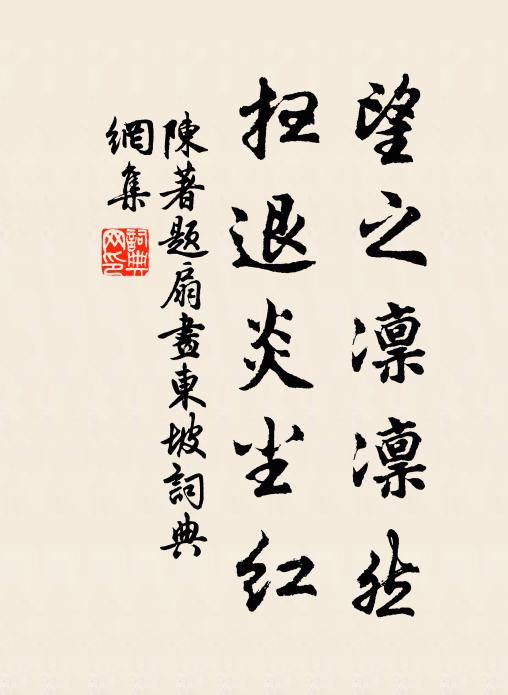 望之凛凛然
扫退炎尘红
陳著题扇畫東坡詞典
網集
詞典
网印